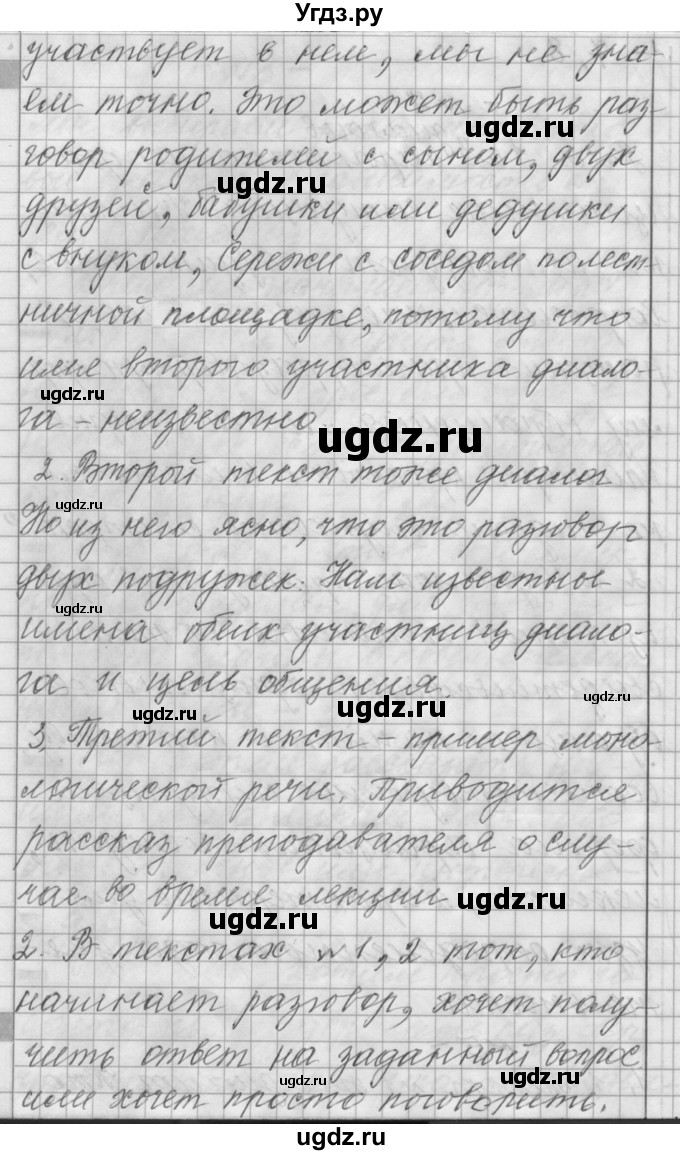 Угдз.ру
участвует в нем, мы не зна-
ем точно. Это может быть раз-
ugdz.ru
говор родителей с сыном, двух
ugdz.ru
друзей, бабушки или дедушки
с внуком, Сережи с соседом по лест-
ничной площадке, потому что
имя второго участника диало-
ugdz.ru
га - неизвестно
ugdz.ru
2. Второй текст тоже диалог
ugdz.ru
Но из него ясно, что это разговор
двух подружек. Нам известны
ugdz.ru
имена обеих участниц диало-
га и цель общения.
ugdz.ru
ugdz.ru
ugdz.ru
3. Третий текст - пример моно-
логической речи. Приводится
рассказ преподавателя о слу-
чае во время лекции
ugdz.ru
ugdz.ru
2. В текстах №1, 2 тот, кто
начинает разговор, хочет полу-
чить ответ на заданный вопрос
ugdz.ru
ugdz.ru
или хочет просто поговорить.
ugdz.ru